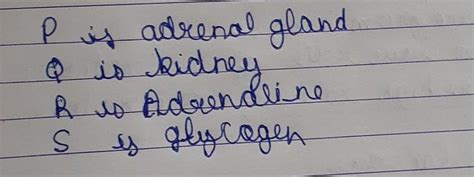 P is adrenal gland
Q is kidney
R is Adrenaline
S is glycogen